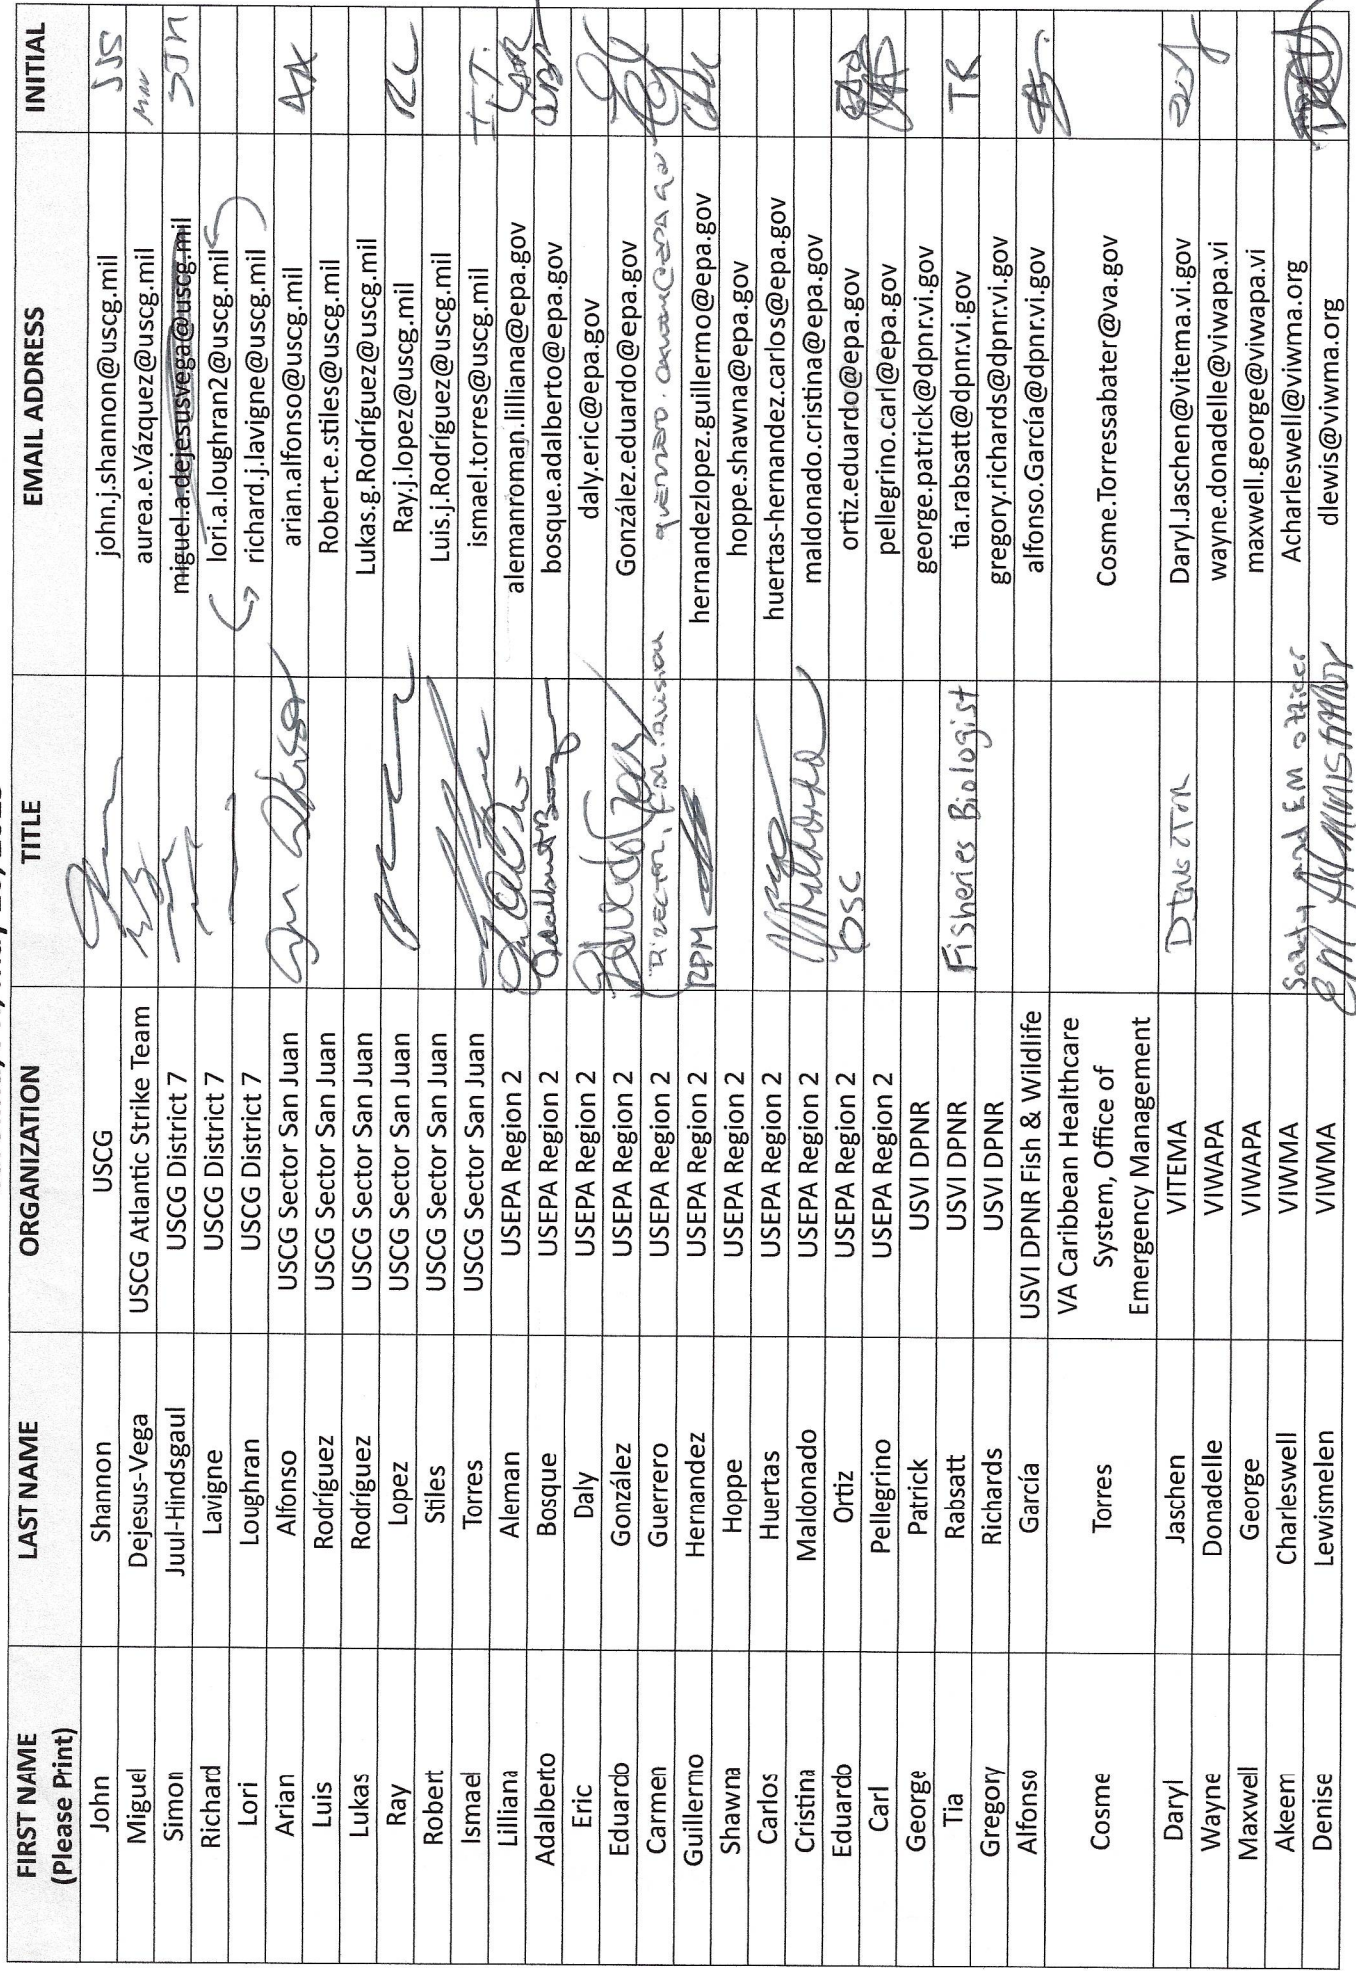 FIRST NAME (Please Print) LAST NAME ORGANIZATION TITLE EMAIL ADDRESS INITIAL
John Shannon USCG john.j.shannon@uscg.mil JJS
Miguel Dejesus-Vega USCG Atlantic Strike Team aurea.e.Vázquez@uscg.mil
Simon Juul-Hindsgaul USCG District 7 miguel.a.dejesusvega@uscg.mil SJH
Richard Lavigne USCG District 7 lori.a.loughran2@uscg.mil
Lori Loughran USCG District 7 richard.j.lavigne@uscg.mil
Arian Alfonso USCG Sector San Juan arian.alfonso@uscg.mil AA
Luis Rodríguez USCG Sector San Juan Robert.e.stiles@uscg.mil
Lukas Rodríguez USCG Sector San Juan Lukas.g.Rodríguez@uscg.mil
Ray Lopez USCG Sector San Juan Ray.j.lopez@uscg.mil RL
Robert Stiles USCG Sector San Juan Luis.j.Rodríguez@uscg.mil
Ismael Torres USCG Sector San Juan ismael.torres@uscg.mil I.T.
Lilliana Aleman USEPA Region 2 alemanroman.lilliana@epa.gov LAR
Adalberto Bosque USEPA Region 2 bosque.adalberto@epa.gov
Eric Daly USEPA Region 2 daly.eric@epa.gov
Eduardo González USEPA Region 2 González.eduardo@epa.gov
Carmen Guerrero USEPA Region 2 Director, Division guerrero.carmen@epa.gov
Guillermo Hernandez USEPA Region 2 RPM hernandezlopez.guillermo@epa.gov
Shawna Hoppe USEPA Region 2 hoppe.shawna@epa.gov
Carlos Huertas USEPA Region 2 huertas-hernandez.carlos@epa.gov
Cristina Maldonado USEPA Region 2 maldonado.cristina@epa.gov
Eduardo Ortiz USEPA Region 2 OSC ortiz.eduardo@epa.gov
Carl Pellegrino USEPA Region 2 pellegrino.carl@epa.gov
George Patrick USVI DPNR george.patrick@dpnr.vi.gov
Tia Rabsatt USVI DPNR Fisheries Biologist tia.rabsatt@dpnr.vi.gov TR
Gregory Richards USVI DPNR gregory.richards@dpnr.vi.gov
Alfonso García USVI DPNR Fish & Wildlife alfonso.García@dpnr.vi.gov
Cosme Torres VA Caribbean Healthcare System, Office of Emergency Management Cosme.Torressabater@va.gov
Daryl Jaschen VITEMA Director Daryl.Jaschen@vitema.vi.gov
Wayne Donadelle VIWAPA wayne.donadelle@viwapa.vi
Maxwell George VIWAPA maxwell.george@viwapa.vi
Akeem Charleswell VIWMA Safety and EM officer Acharleswell@viwma.org
Denise Lewismelen VIWMA EM Administrator dlewis@viwma.org